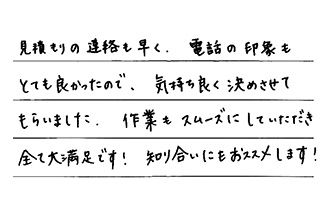 見積もりの連絡も早く、電話の印象も
とても良かったので、気持ち良く決めさせて
もらいました。作業もスムーズにしていただき
全て大満足です！知り合いにもおススメします！